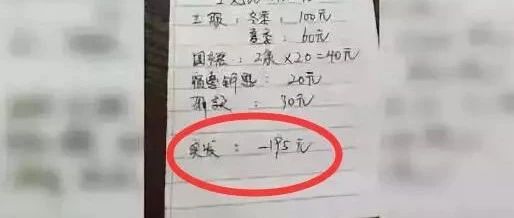 工服：冬季：100元
夏季：60元
2条×20=40元
宿舍钥匙：20元
：30元
实发：-195元